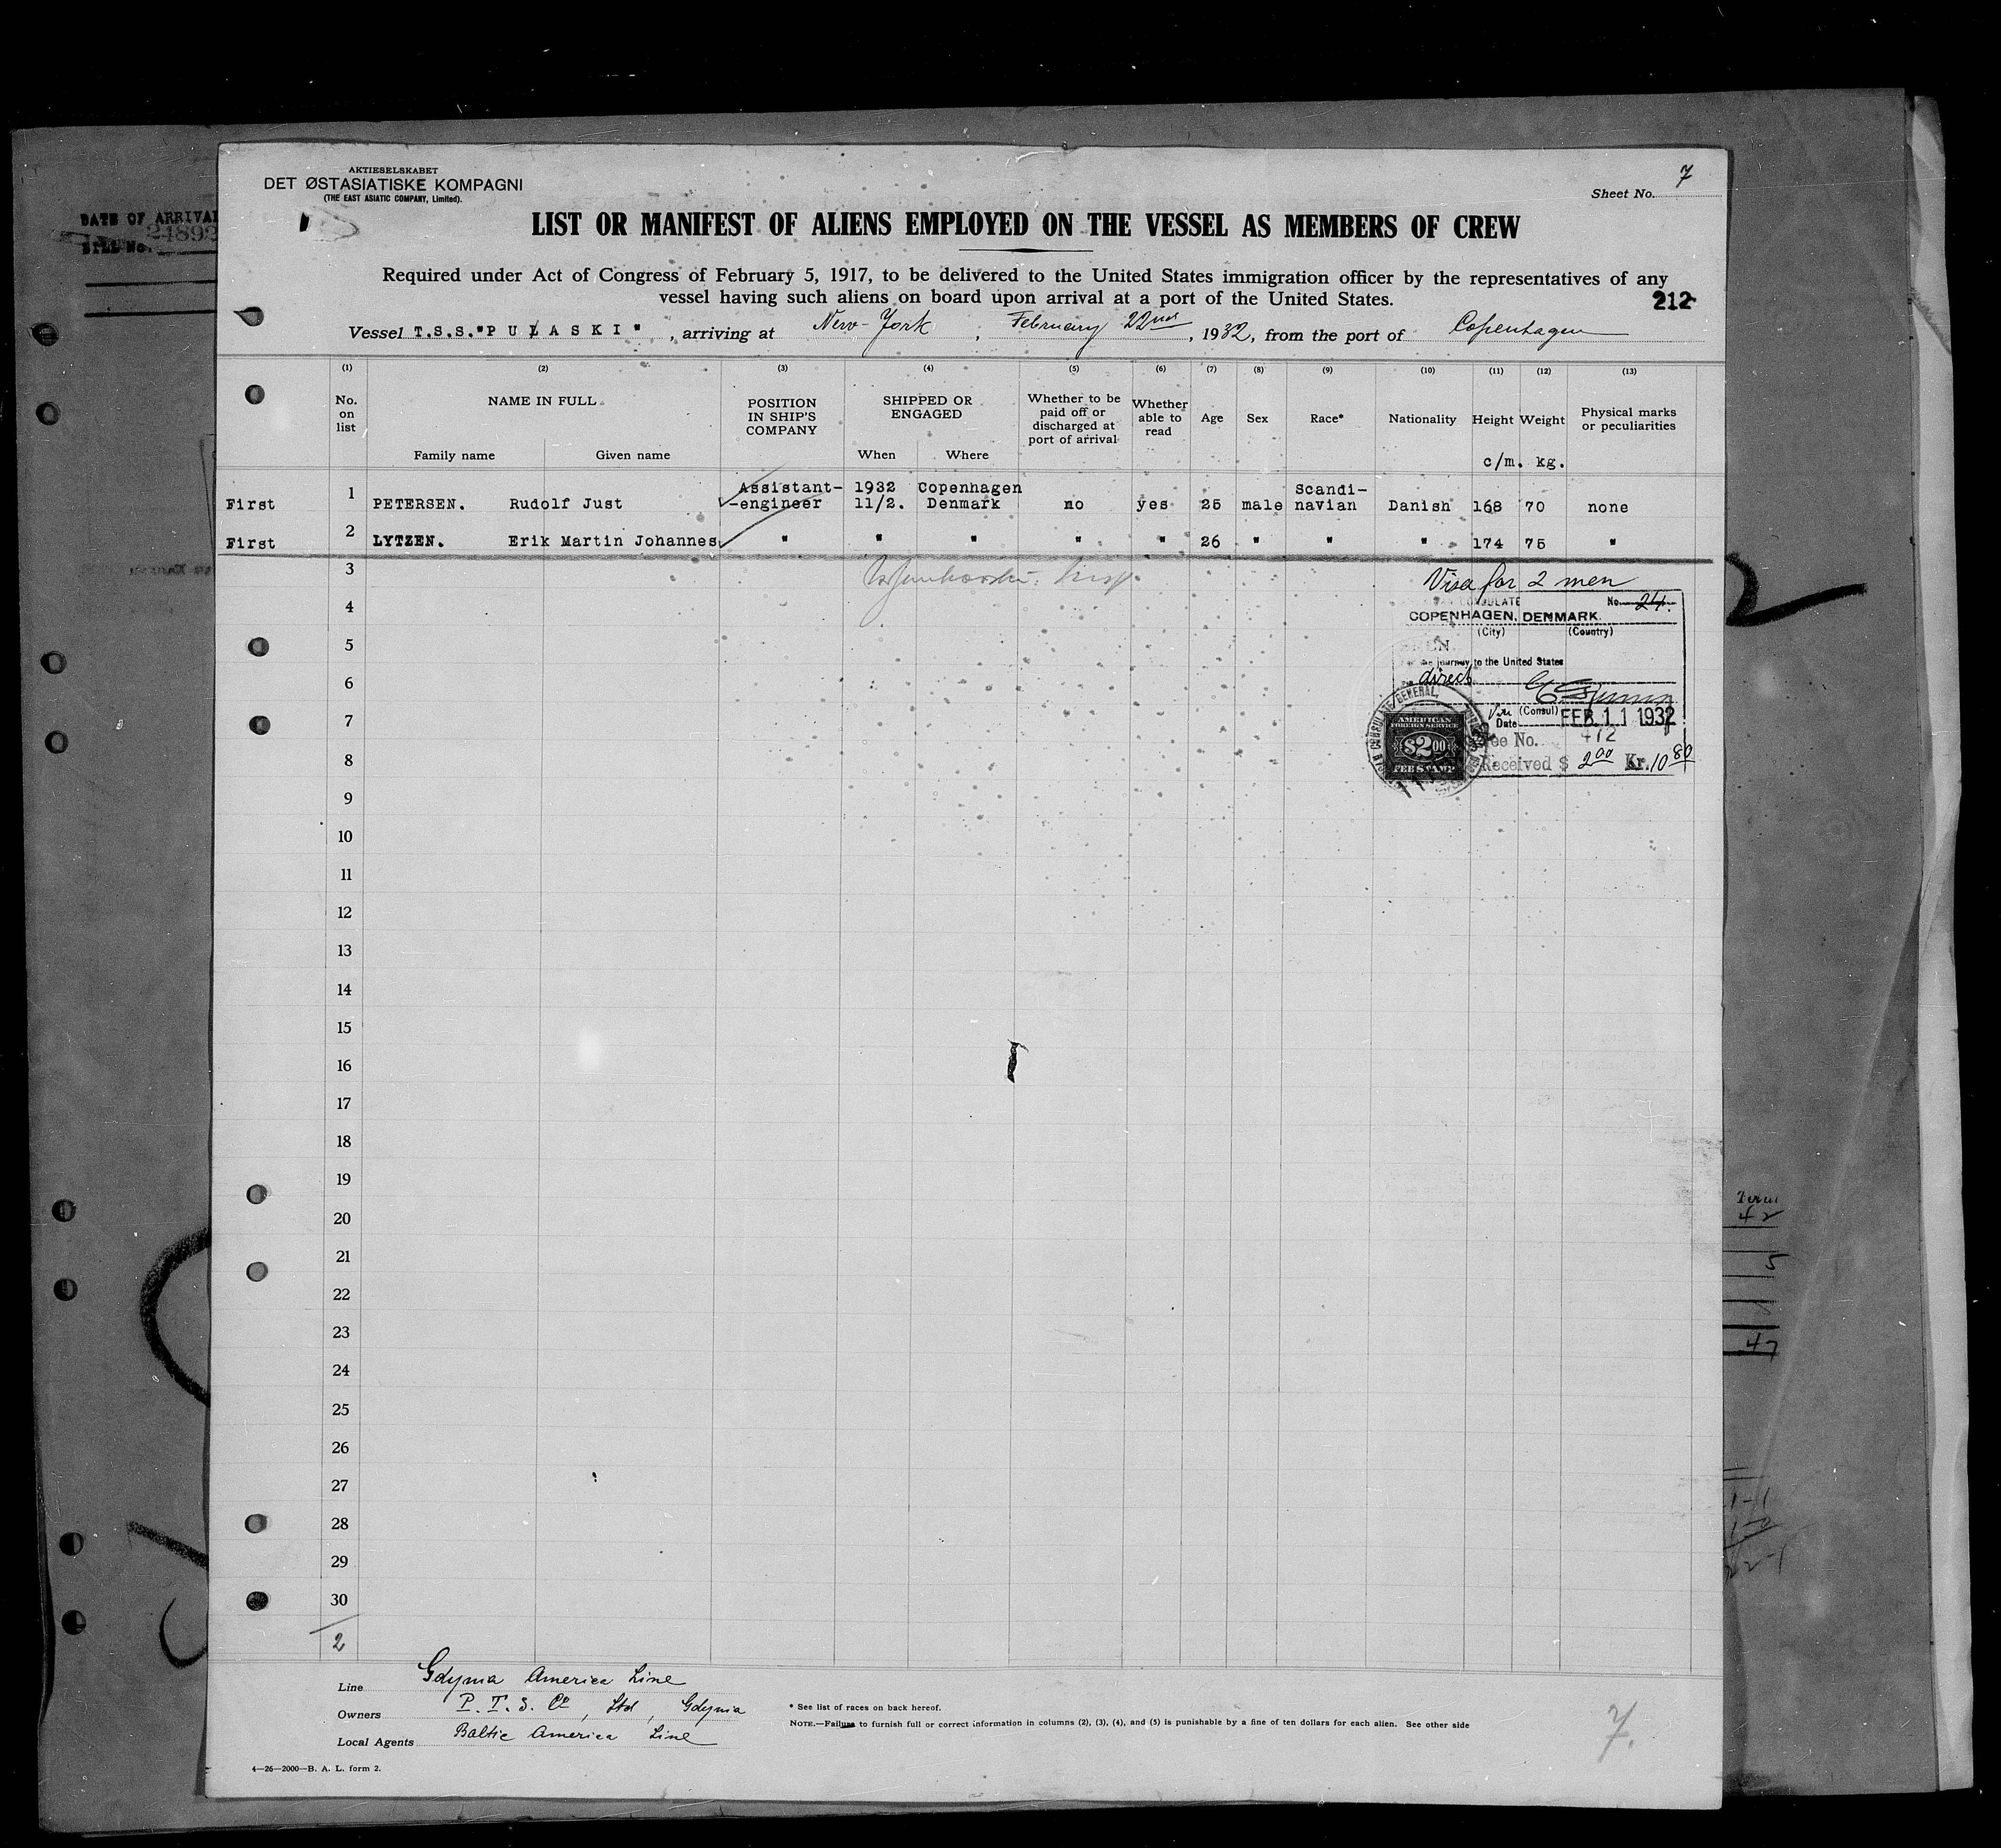 AKTIESELSKABET
DET ØSTASIATISKE KOMPAGNI
(THE EAST ASIATIC COMPANY, Limited).
Sheet No. 7
DATE OF ARRIVAL
24892
BILL No.
LIST OR MANIFEST OF ALIENS EMPLOYED ON THE VESSEL AS MEMBERS OF CREW
Required under Act of Congress of February 5, 1917, to be delivered to the United States immigration officer by the representatives of any
vessel having such aliens on board upon arrival at a port of the United States.
212
Vessel T.S.S."PUŁASKI", arriving at New-York, February 22nd, 1932, from the port of Copenhagen
(1) (2) (3) (4) (5) (6) (7) (8) (9) (10) (11) (12) (13)
No. on list
NAME IN FULL
Family name Given name
POSITION IN SHIP'S COMPANY
SHIPPED OR ENGAGED
When Where
Whether to be paid off or discharged at port of arrival
Whether able to read
Age Sex Race* Nationality Height Weight
c/m. kg.
Physical marks or peculiarities
First 1 PETERSEN. Rudolf Just Assistant--engineer 1932 11/2. Copenhagen Denmark no yes 25 male Scandi-navian Danish 168 70 none
First 2 LYTZEN. Erik Martin Johannes " " " " " 26 " " " 174 75 "
3
Visa for 2 men
4
CONSULATE No. 24.
COPENHAGEN, DENMARK.
(City) (Country)
5
the journey to the United States
6
direct
7
(Consul)
Date FEB 11 1932
AMERICAN
FOREIGN SERVICE
$2.00
FEE STAMP
CONSULATE GENERAL,
Fee No. 412
8
Received $ 2.00 Kr. 10 80
9
10
11
12
13
14
15
16
17
18
19
20
21
22
23
24
25
26
27
28
29
30
2
42
5
47
Line Gdynia America Line
Owners P. T. S. Co, Ltd, Gdynia
Local Agents Baltic America Line
* See list of races on back hereof.
NOTE.—Failure to furnish full or correct information in columns (2), (3), (4), and (5) is punishable by a fine of ten dollars for each alien. See other side
7.
4—26—2000—B. A. L. form 2.